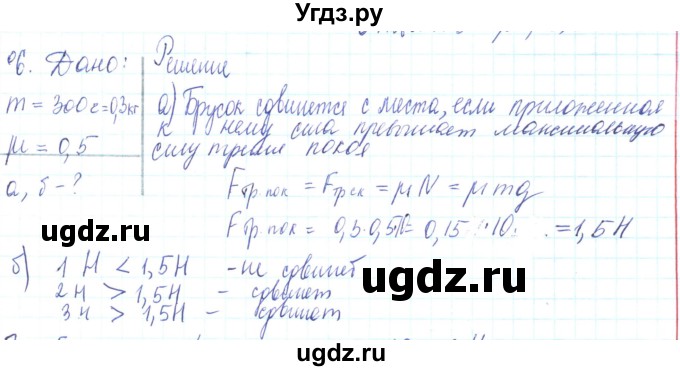 Угдз.ру
№6. Дано: Решение
m = 300г=0,3кг
μ = 0,5
а, б - ?
а) Брусок сдвинется с места, если приложенная
к нему сила превышает максимальную
силу трения покоя
Fтр.пок = Fтр ск = μN = μmg
Fтр.пок = 0,3·0,5 = 0,15 · 10 = 1,5Н
б) 1 Н < 1,5Н - не сдвинет
2н > 1,5Н - сдвинет
3н > 1,5Н - сдвинет
uгдz.ru
uгдz.ru
uгдz.ru